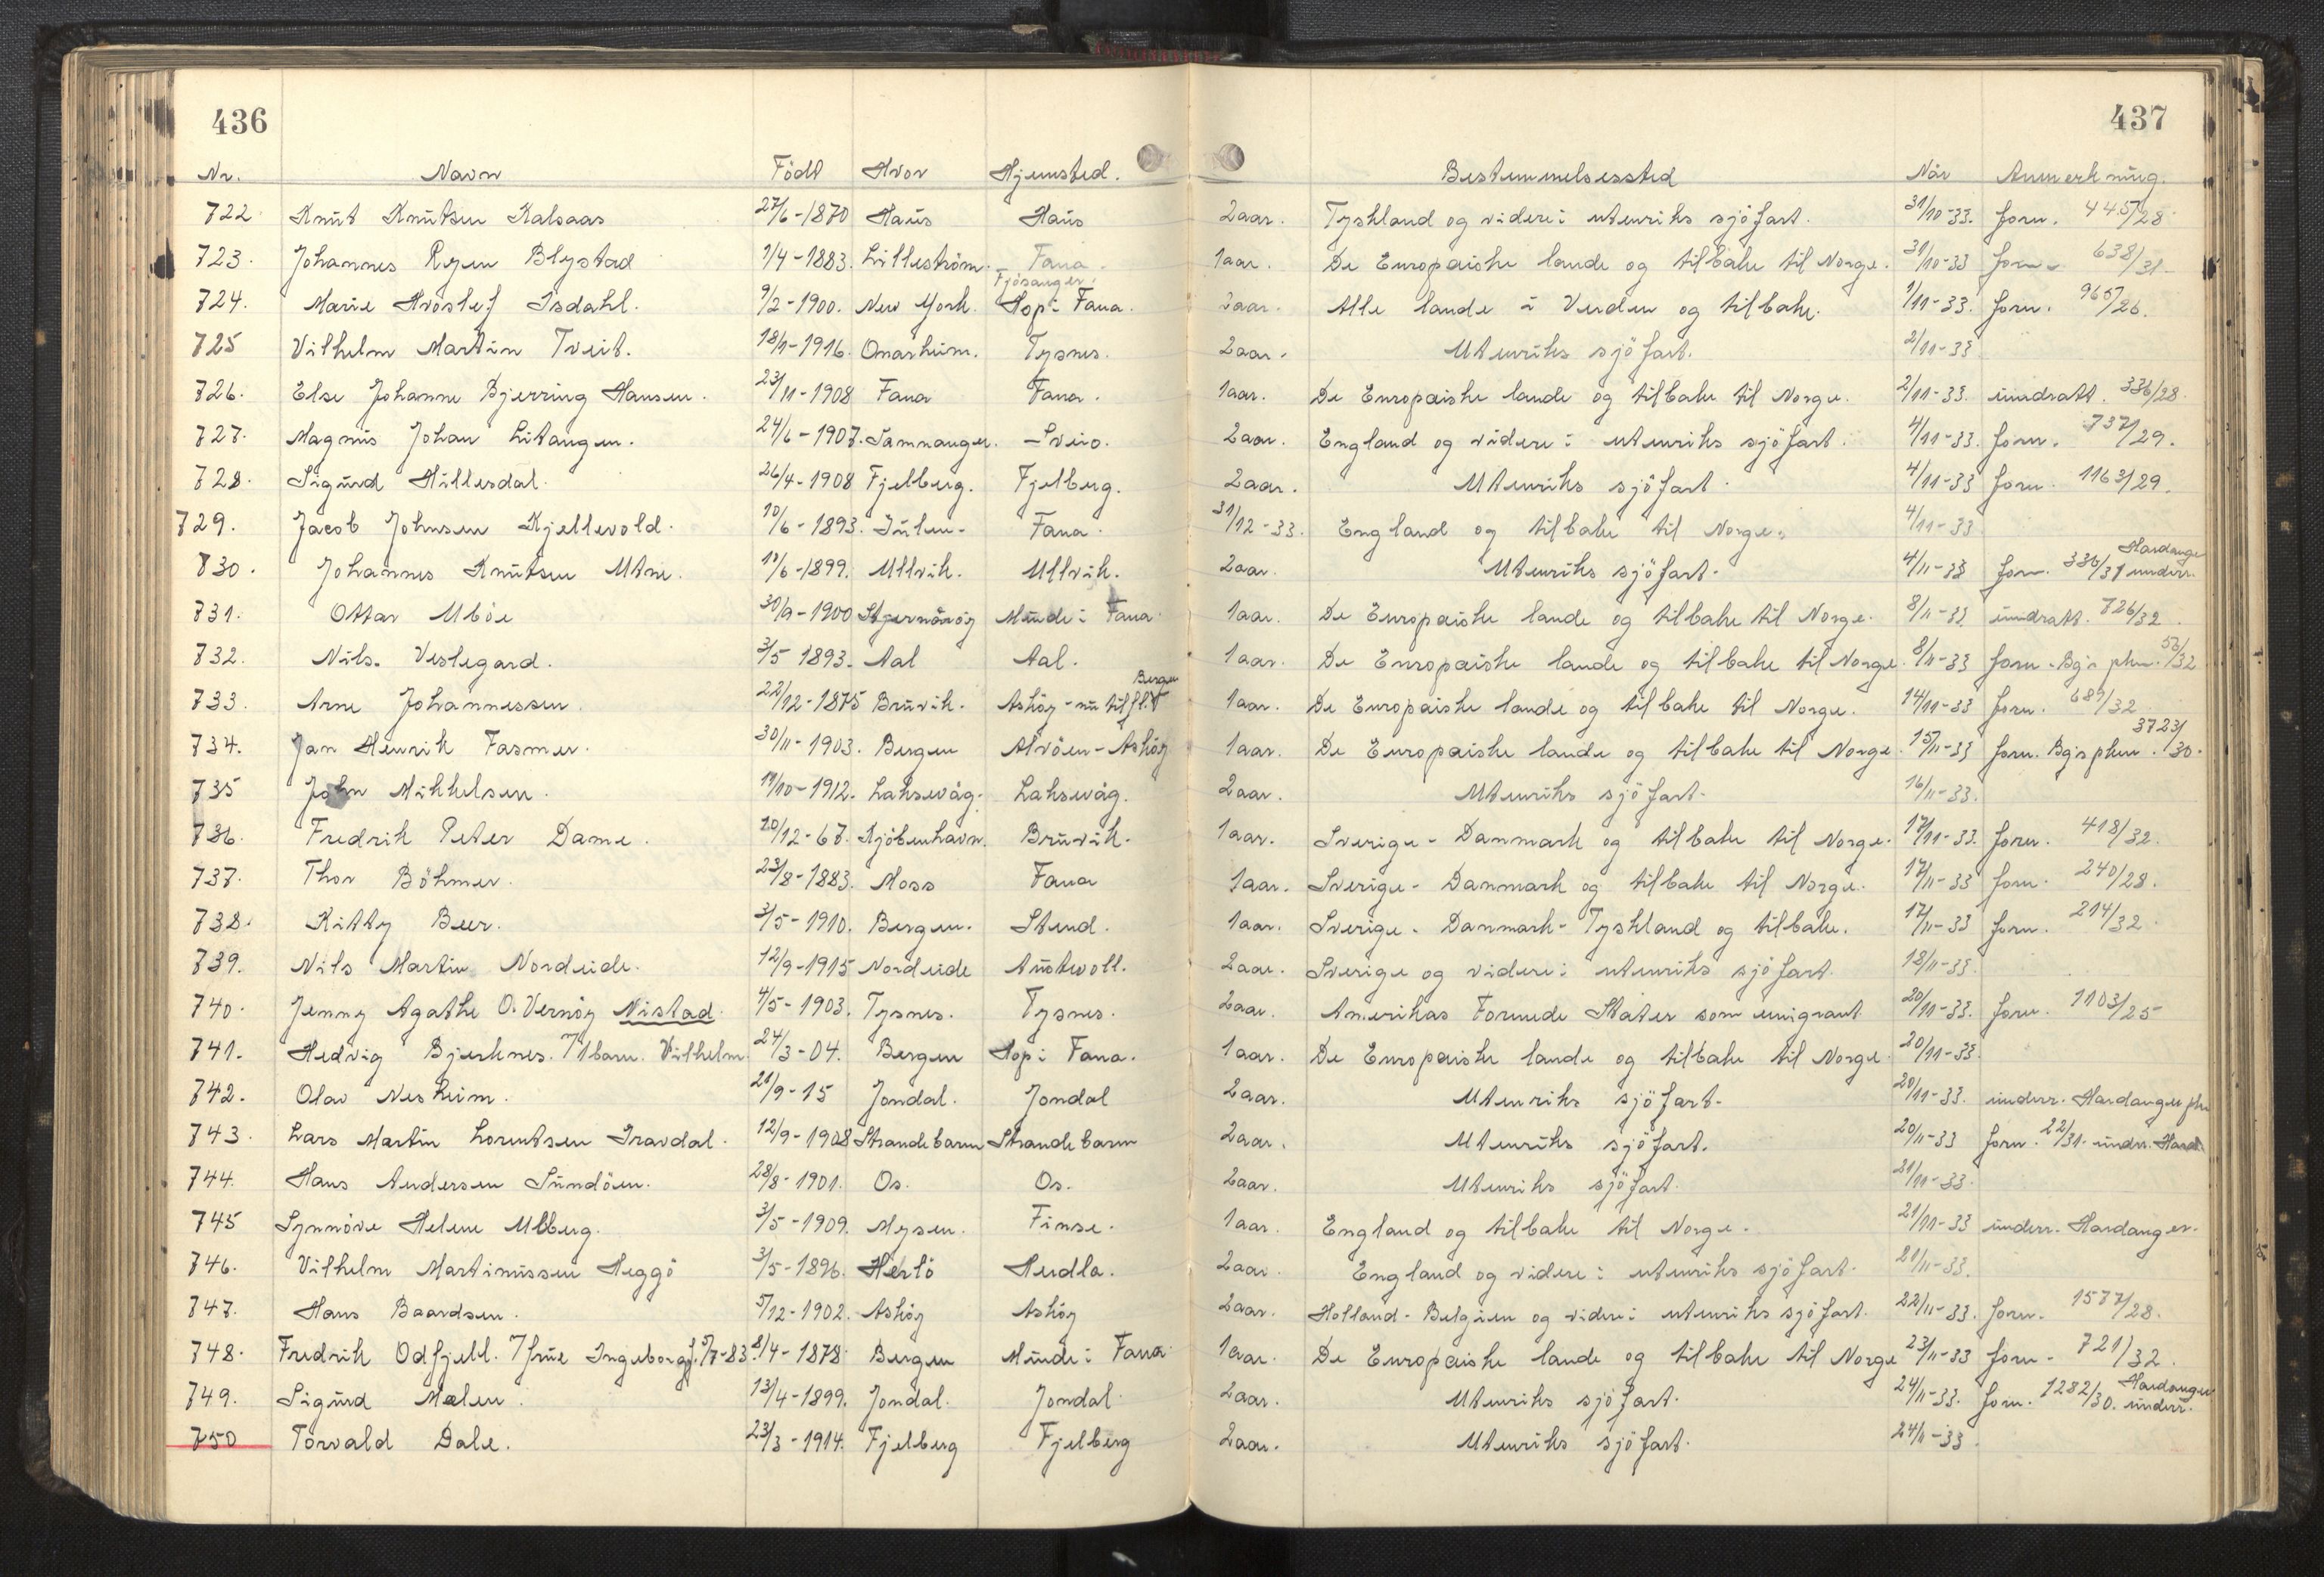 436 437
Nr. Navn Född Hvor Hjemsted. Bestemmelsessted Når Anmerkning.
722 Knut Knutsen Kalsaas 27/6-1870 Haus Haus 2aar. Tyskland og videre i utenriks sjöfart. 31/10-33. forn. 445/28
723. Johannes Ryen Blystad 1/4-1883. Lilleström. Fana. 1aar. De Europæiske lande og tilbake til Norge. 31/10-33 forn. 638/31
724. Marie Hroslef Isdahl. 9/2-1900. New York. Fjösanger. Hop i Fana. 2aar. Alle lande i Verden og tilbake. 1/11-33. forn. 965/26.
725 Vilhelm Martin Tveit. 18/1-1916. Onarheim. Tysnes. 2aar. Utenriks sjöfart. 2/11-33
726. Else Johanne Bjerring Hansen. 23/11-1908 Fana Fana. 1aar. De Europæiske lande og tilbake til Norge. 2/11-33. inndratt. 336/28.
727. Magnus Johan Litangen. 24/6-1907. Samnanger. Sveio. 2aar. England og videre i utenriks sjöfart. 4/11-33. forn. 737/29.
728. Sigurd Hillesdal. 26/4-1908 Fjelberg. Fjelberg. 2aar. Utenriks sjöfart. 4/11-33 forn. 1163/29.
729. Jacob Johnsen Kjellevold. 10/6-1893. Fana. 31/12-33. England og tilbake til Norge. 4/11-33
730. Johannes Knutsen Utne. 11/6-1899. Ullvik. Ullvik. 2aar. Utenriks sjöfart. 4/11-33 forn. 336/31 Hardanger underr.
731. Ottar Uböe 30/9-1900 Stjernöröy Minde i Fana. 1aar. De Europæiske lande og tilbake til Norge. 8/11-33 inndratt. 726/32.
732. Nils. Veslegard. 3/5-1893. Aal Aal. 1aar. De Europæiske lande og tilbake til Norge. 8/11-33 forn. Bg's pkm. 52/32
733. Arne Johannessen. 22/12-1875 Bruvik. Askøy - nu tilfl. Bergen 1aar. De Europæiske lande og tilbake til Norge. 14/11-33 forn. 689/32
734. Jan Henrik Fasmer. 30/11-1903. Bergen Alvöen-Askøy 1aar. De Europæiske lande og tilbake til Norge. 15/11-33 forn. Bg's pkm. 3723/30.
735 John Mikkelsen. 19/10-1912. Laksevåg. Laksevåg. 2aar. Utenriks sjöfart. 16/11-33.
736. Fredrik Peter Dame. 20/12-67. Kjöbenhavn. Bruvik. 1aar. Sverige - Danmark og tilbake til Norge. 17/11-33. forn. 418/32.
737. Thor Böhmer. 23/8-1883. Moss Fana 1aar. Sverige - Danmark og tilbake til Norge. 17/11-33 forn. 240/28.
738. Kitty Beer. 3/5-1910. Bergen. Stend. 1aar. Sverige - Danmark - Tyskland og tilbake. 17/11-33 forn. 214/32.
739. Nils Martin Nordeide. 12/9-1915 Nordeide Austevoll. 2aar. Sverige og videre i utenriks sjöfart. 18/11-33.
740. Jenny Agathe O. Vernöy Nistad. 4/5-1903. Tysnes. Tysnes. 2aar. Amerikas Forenede Stater som emigrant. 20/11-33. forn. 1103/25
741. Hedvig Bjerknes. 7/1 barn. Vilhelm. 24/3-04. Bergen Hop i Fana. 1aar. De Europæiske lande og tilbake til Norge. 20/11-33.
742. Olav Nesheim. 21/9-15 Jondal. Jondal 2aar. Utenriks sjöfart. 20/11-33. underr. Hardanger pkm
743. Lars Martin Lorentsen Travdal. 12/9-1908 Strandebarm Strandebarm 2aar. Utenriks sjöfart. 20/11-33 forn. 22/31. underr. Hard.
744. Hans Andersen Sundöen. 28/8-1901. Os. Os. 2aar. Utenriks sjöfart. 21/11-33.
745 Synnöve Helene Ulberg. 3/5-1909. Mysen. Finse. 1aar. England og tilbake til Norge. 21/11-33 underr. Hardanger.
746. Vilhelm Martinussen Heggö 3/5-1896. Herlö Herdla. 2aar. England og videre i utenriks sjöfart. 21/11-33.
747. Hans Baardsen. 5/12-1902. Askøy Askøy 2aar. Holland - Belgien og videre i utenriks sjöfart. 22/11-33. forn. 1577/28.
748. Fredrik Odfjell. 7/frue Ingeborg f. 5/7-83. 8/4-1878 Bergen Minde i Fana. 1aar. De Europæiske lande og tilbake til Norge 23/11-33 forn. 721/32.
749. Sigurd Mælen. 13/4-1899. Jondal. Jondal. 2aar. Utenriks sjöfart. 24/11-33. forn. 1282/30. Hardanger underr.
750 Torvald Dale. 23/3-1914. Fjelberg Fjelberg 2aar. Utenriks sjöfart. 24/11-33.